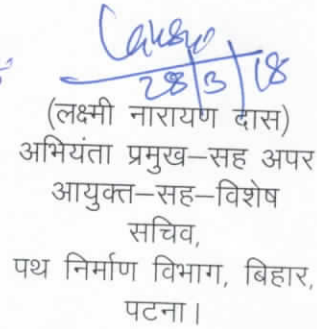 28/3/18
(लक्ष्मी नारायण दास)
अभियंता प्रमुख–सह अपर
आयुक्त–सह–विशेष
सचिव,
पथ निर्माण विभाग, बिहार,
पटना।